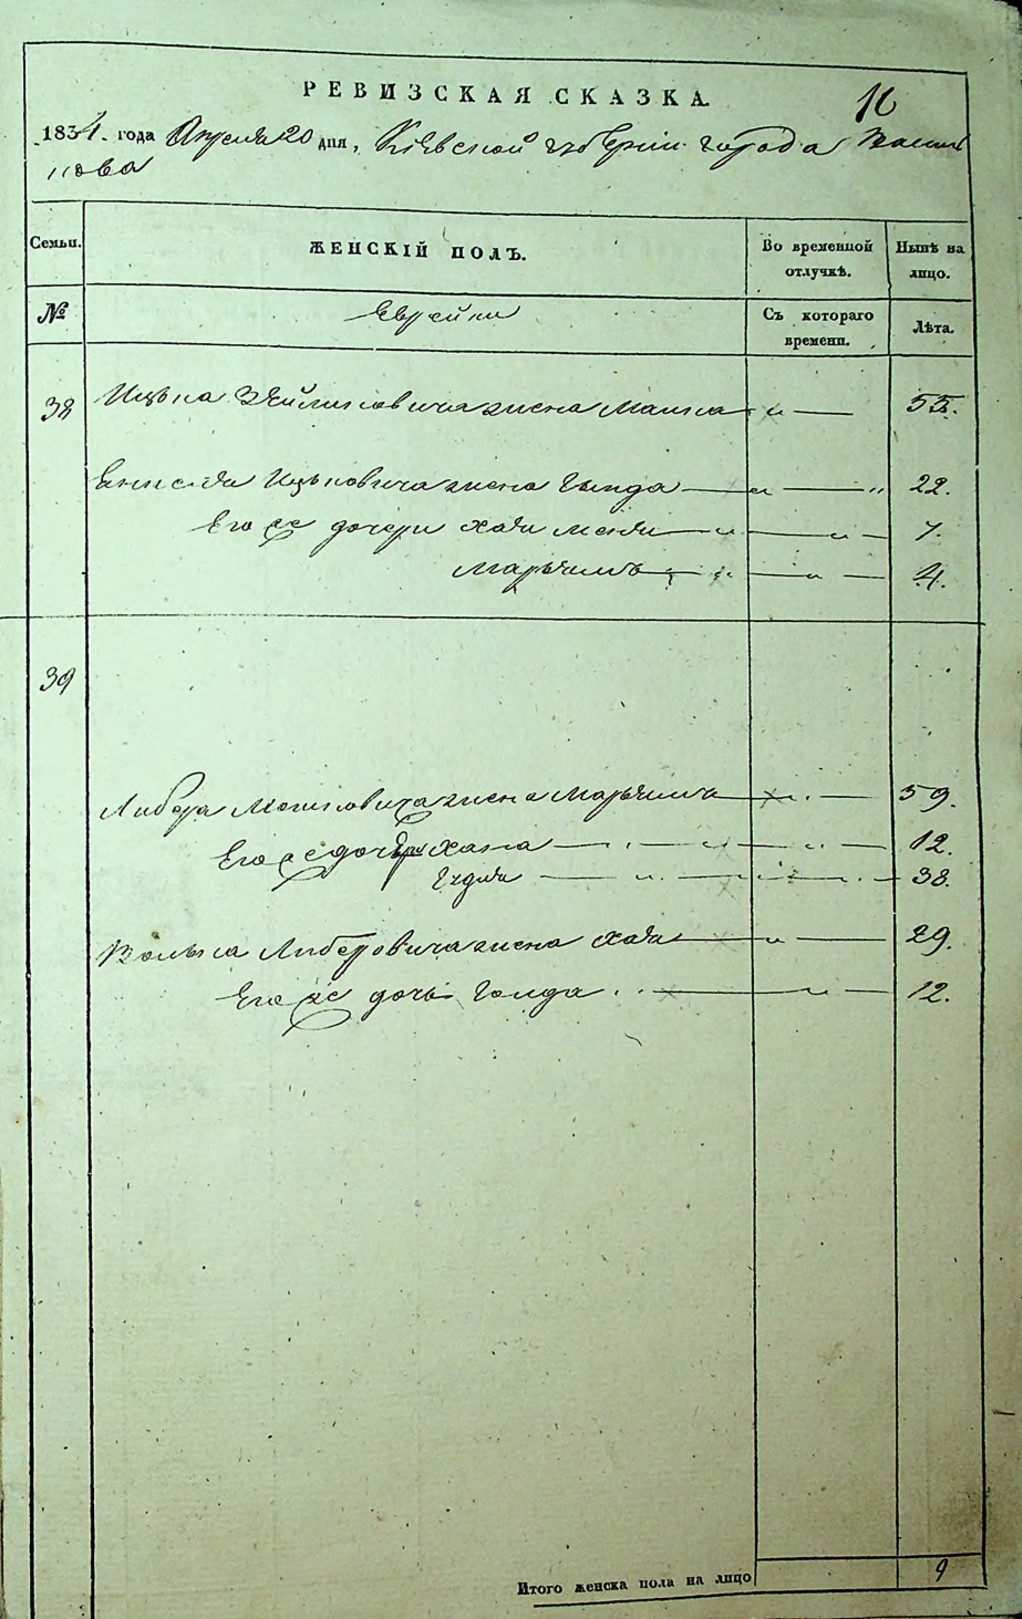 РЕВИЗСКАЯ СКАЗКА.
16
1834. года Апреля 20 дня, Кіевской губерніи города Василь
кова
Семьи.
ЖЕНСКІЙ ПОЛЪ.
Во временной отлучкѣ.
Нынѣ на лицо.
№
Еврейки
Съ котораго времени.
Лѣта.
38 Ицька жена Малка 55.
Ицьковича жена Голда 22.
Его же дочери Хая 7.
Марьямъ 4.
39
Либера жена Марьяма 59.
Его же дочери Хана 12.
38.
Волька Либеровича жена Хая 29.
Его же дочь Голда 12.
Итого женска пола на лицо 9